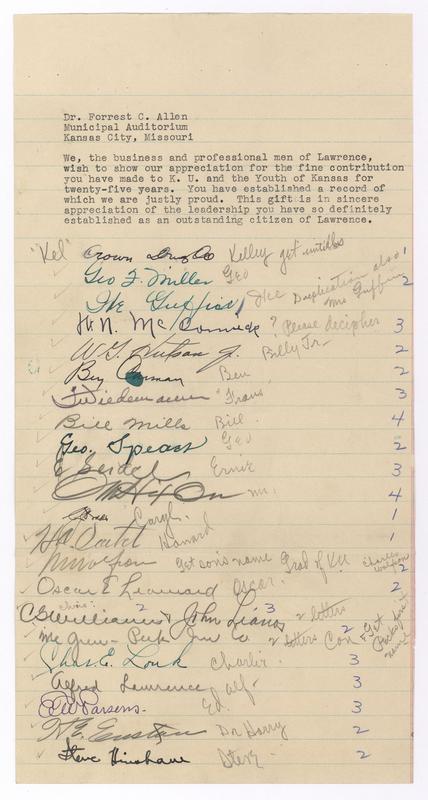 Dr. Forrest C. Allen
Municipal Auditorium
Kansas City, Missouri
We, the business and professional men of Lawrence,
wish to show our appreciation for the fine contribution
you have made to K. U. and the Youth of Kansas for
twenty-five years. You have established a record of
which we are justly proud. This gift is in sincere
appreciation of the leadership you have so definitely
established as an outstanding citizen of Lawrence.
"Kel" Crown Drug Co Kelley get initials 1
Geo F. Miller Geo 2
Ike Guffin Ike Duplication also Mrs Guffin
H. N. McCormick ? Please decipher 3
W. G. Hutson Jr. Billy Jr- 2
Ben Ben 2
F Wiedemann "Frans" 3
Bill Mills Bill. 4
Geo. Speas Geo 2
E Seidel Ernie 3
Hixon Mr. 4
1
Howard 1
Get son's name Grad of KU Charles 2
Oscar E Leonard Oscar. 2
CB Williams & John Lianos 2 letters
2 3
Co 2 letters Con & Get first name
2
Chas. E. Louk Charlie. 3
Alfred Lawrence Alf- 3
Ed Parsons. Ed. 3
Dr Harry 2
Steve Hinshaw Steve 2